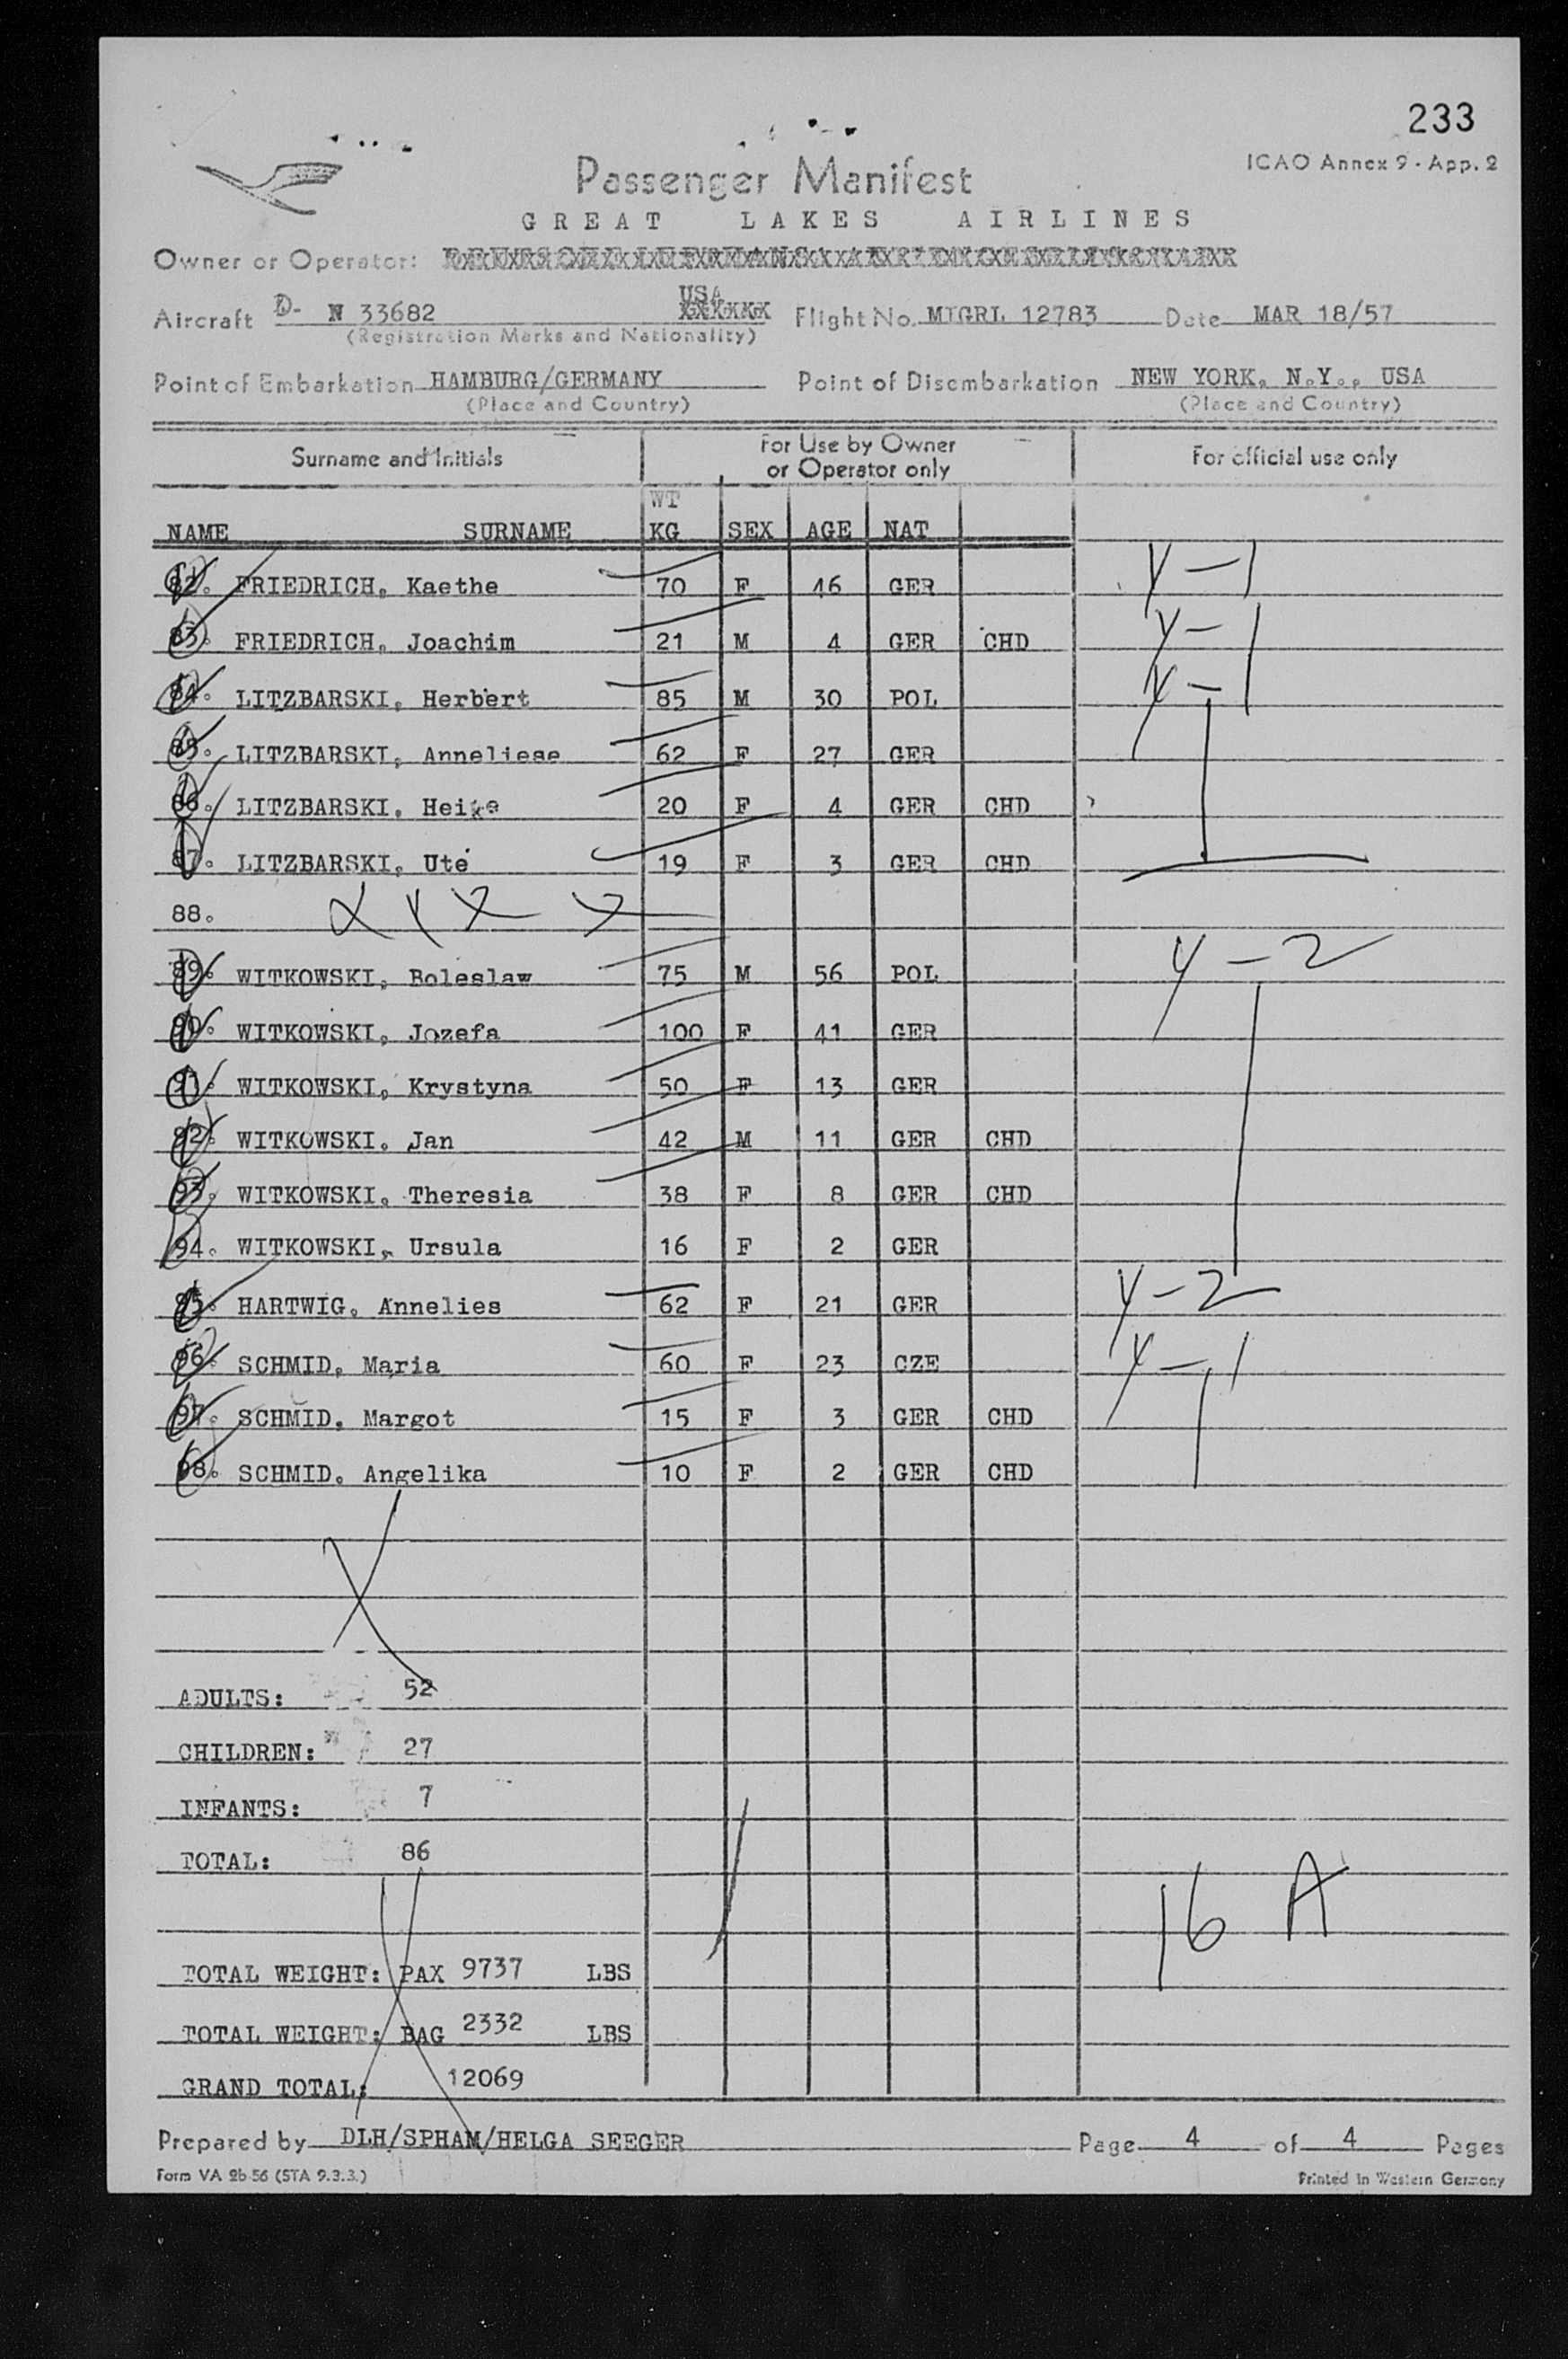 233
ICAO Annex 9 - App. 2
Passenger Manifest
GREAT LAKES AIRLINES
Owner or Operator:
Aircraft D- N 33682 USA Flight No. MIGRL 12783 Date MAR 18/57
(Registration Marks and Nationality)
Point of Embarkation HAMBURG/GERMANY Point of Disembarkation NEW YORK, N.Y., USA
(Place and Country) (Place and Country)
Surname and Initials For Use by Owner or Operator only For official use only
WT
NAME SURNAME KG SEX AGE NAT
82. FRIEDRICH, Kaethe 70 F 46 GER Y-1
83. FRIEDRICH, Joachim 21 M 4 GER CHD Y-1
84. LITZBARSKI, Herbert 85 M 30 POL Y-1
85. LITZBARSKI, Anneliese 62 F 27 GER
86. LITZBARSKI, Heike 20 F 4 GER CHD
87. LITZBARSKI, Ute 19 F 3 GER CHD
88. X X X X
89. WITKOWSKI, Boleslaw 75 M 56 POL Y-2
90. WITKOWSKI, Jozefa 100 F 41 GER
91. WITKOWSKI, Krystyna 50 F 13 GER
92. WITKOWSKI, Jan 42 M 11 GER CHD
93. WITKOWSKI, Theresia 38 F 8 GER CHD
94. WITKOWSKI, Ursula 16 F 2 GER
95. HARTWIG, Annelies 62 F 21 GER Y-2
96. SCHMID, Maria 60 F 23 CZE Y-1
97. SCHMID, Margot 15 F 3 GER CHD
98. SCHMID, Angelika 10 F 2 GER CHD
ADULTS: 52
CHILDREN: 27
INFANTS: 7
TOTAL: 86
16 A
TOTAL WEIGHT: PAX 9737 LBS
TOTAL WEIGHT: BAG 2332 LBS
GRAND TOTAL: 12069
Prepared by DLH/SPHAM/HELGA SEEGER Page 4 of 4 Pages
Form VA 2b-56 (STA 9.3.3.) Printed in Western Germany